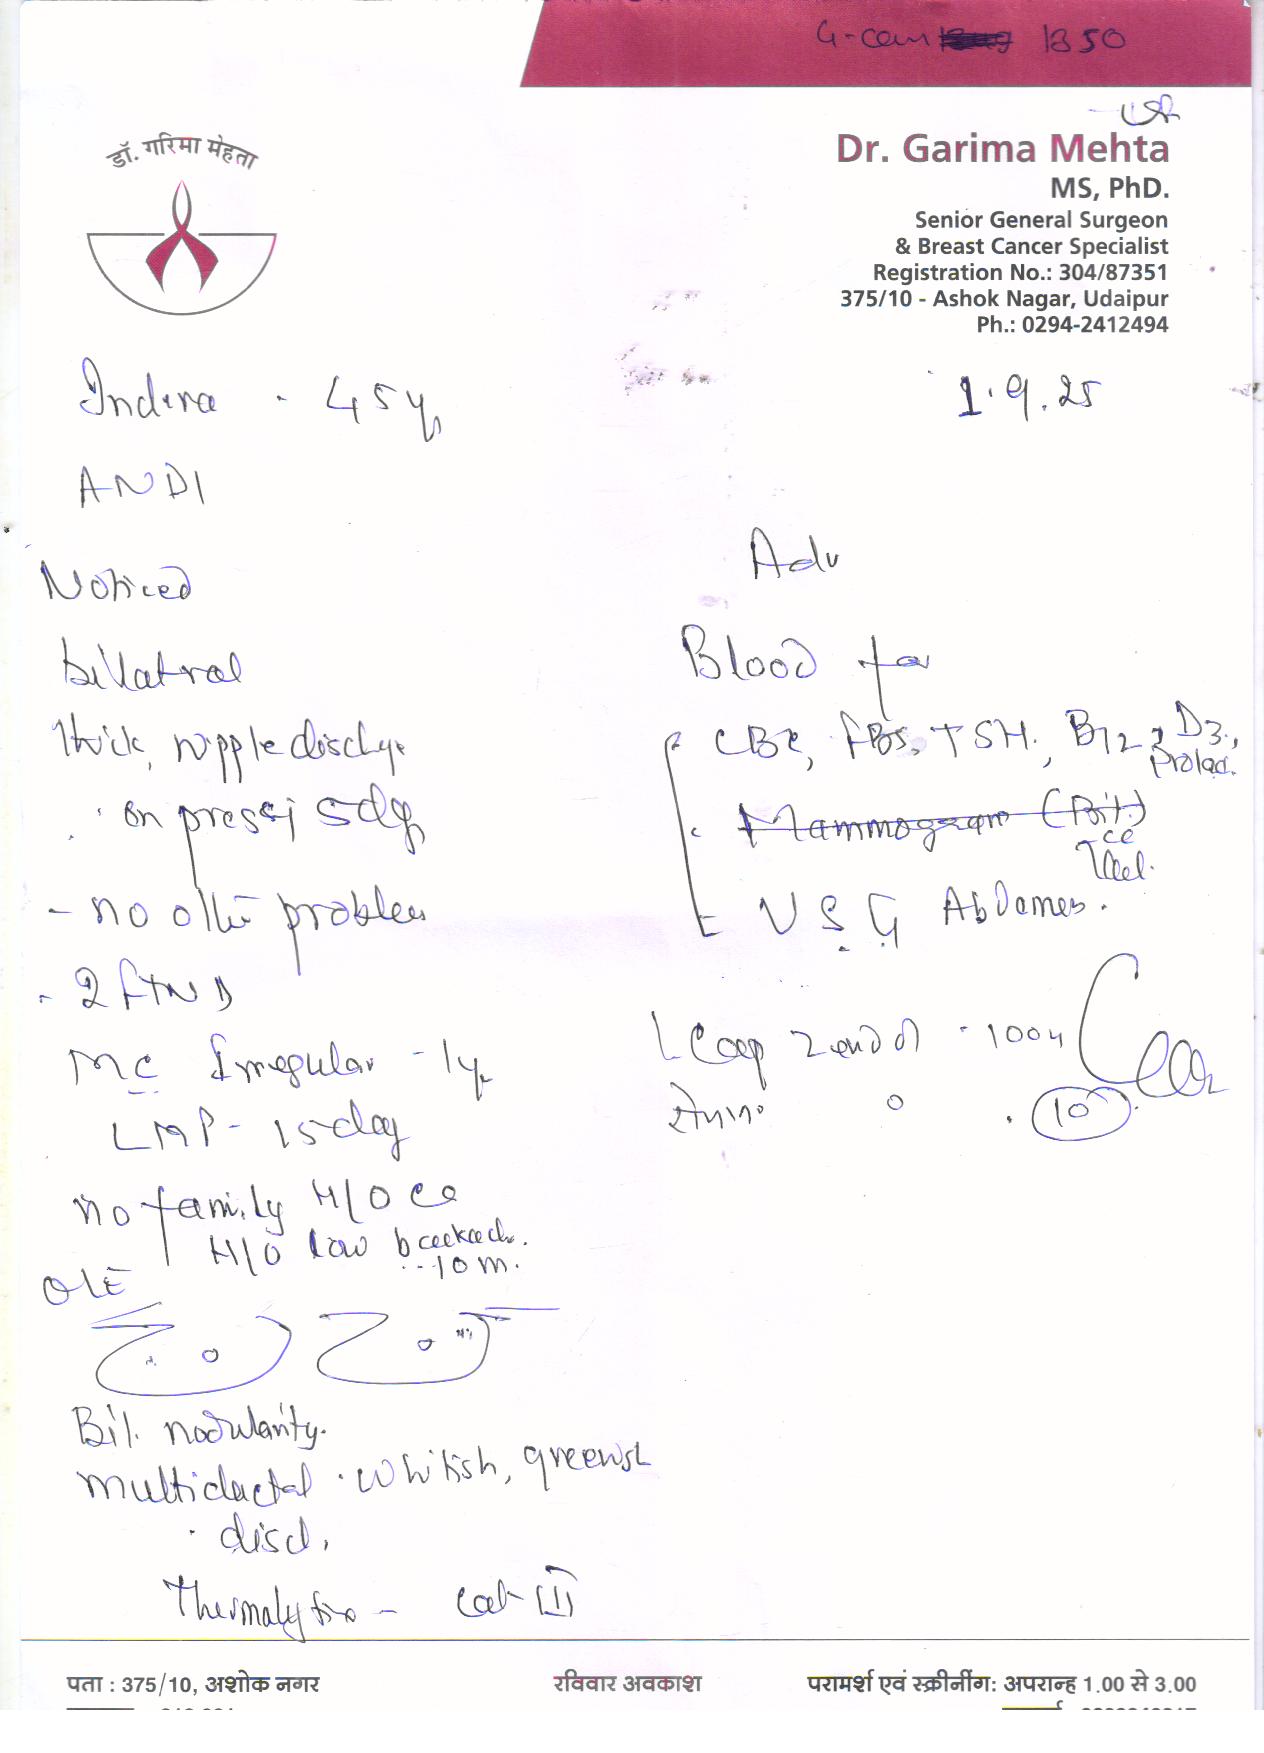 G-cam 1850
डॉ. गरिमा मेहता
Dr. Garima Mehta
MS, PhD.
Senior General Surgeon
& Breast Cancer Specialist
Registration No.: 304/87351
375/10 - Ashok Nagar, Udaipur
Ph.: 0294-2412494
Indira - 45y
1.9.25
ANDI
Noticed
billatral
thick, nipple dischge
on pressi 5dy
- no other problem
- 2 FTND
MC Irregular - 1y
LMP - 15 day
no family H/O Ca
H/O low backach.
10 m.
O/E
Bil. nodularity.
multiductal . whitish, greenish
. disch.
- Cat III
Adv
Blood for
CBC, FBS, TSH, B12, D3,
Prolac.
Mammogram (Bil)
USG Abdomen.
100
10
पता : 375/10, अशोक नगर
रविवार अवकाश
परामर्श एवं स्क्रीनींग: अपरान्ह 1.00 से 3.00